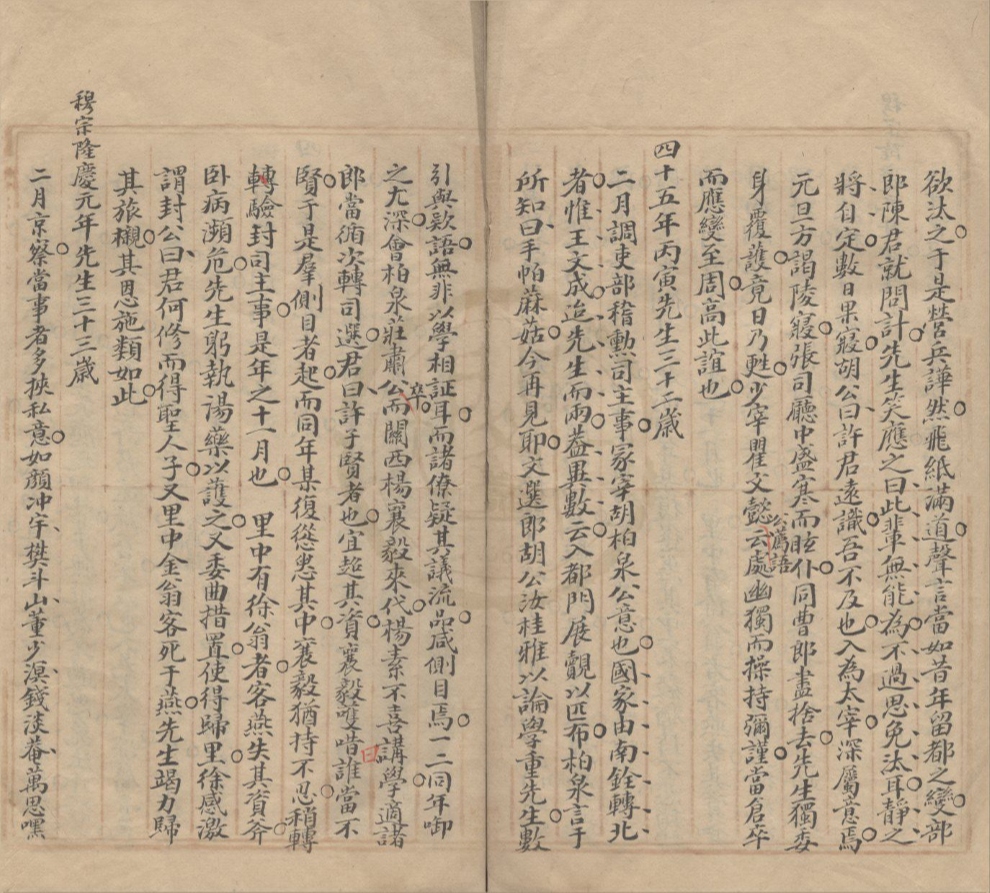 欲汰之于是營兵譁然飛紙滿道聲言當如昔年留都之變部
郎陳君就問計先生笑應之曰此輩無能為不過思免汰耳靜之
將自定數日果寢胡公曰許君遠識吾不及也入為太宰深屬意焉
元旦方謁陵寢張司廳中盛寒而眩仆同曹郎盡捨去先生獨委
身覆護竟日乃甦少宰瞿文懿公薦語云處幽獨而操持彌謹當倉卒
而應變至周高此誼也
四十五年丙寅先生三十二歲
二月調吏部稽勲司主事冢宰胡柏泉公意也國家由南銓轉北
者惟王文成迨先生而兩葢異數云入都門展覿以匹布柏泉言于
所知曰手帕蔴菇今再見耶文選郎胡公汝桂雅以論學重先生數
引與欵語無非以學相証耳而諸僚疑其議流品咸側目焉一二同年卸
之尤深會柏泉莊肅公卒而關西楊襄毅來代楊素不喜講學適諸
郎當循次轉司選君曰許子賢者也宜超其資襄毅嘆唶誰當不
賢于是羣側目者起而同年某復從恿其中襄毅猶持不忍稍轉
轉驗封司主事是年之十一月也　里中有徐翁者客燕失其資斧
卧病瀕危先生躬執湯藥以護之又委曲措置使得歸里徐感激
謂封公曰君何修而得聖人子又里中金翁客死于燕先生竭力歸
其旅櫬其思施類如此
穆宗隆慶元年先生三十三歲
二月京察當事者多挾私意如顏冲宇樊斗山董少溟錢淡菴萬思嘿